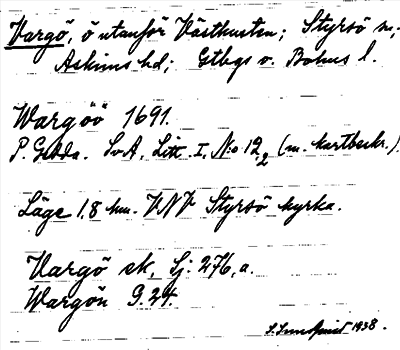 Vargö, ö utanför Västkusten; Styrsö sn;
Askims hd; Gtbgs o. Bohus l.
Wargöö 1691.
P. Gedda. SvA, Litt. I, No 12, 2 (m. kartbeskr.)
Läge 1,8 km. VNV Styrsö kyrka.
Vargö ek, Sj. 276, a.
Wargön G. 24.
1938.